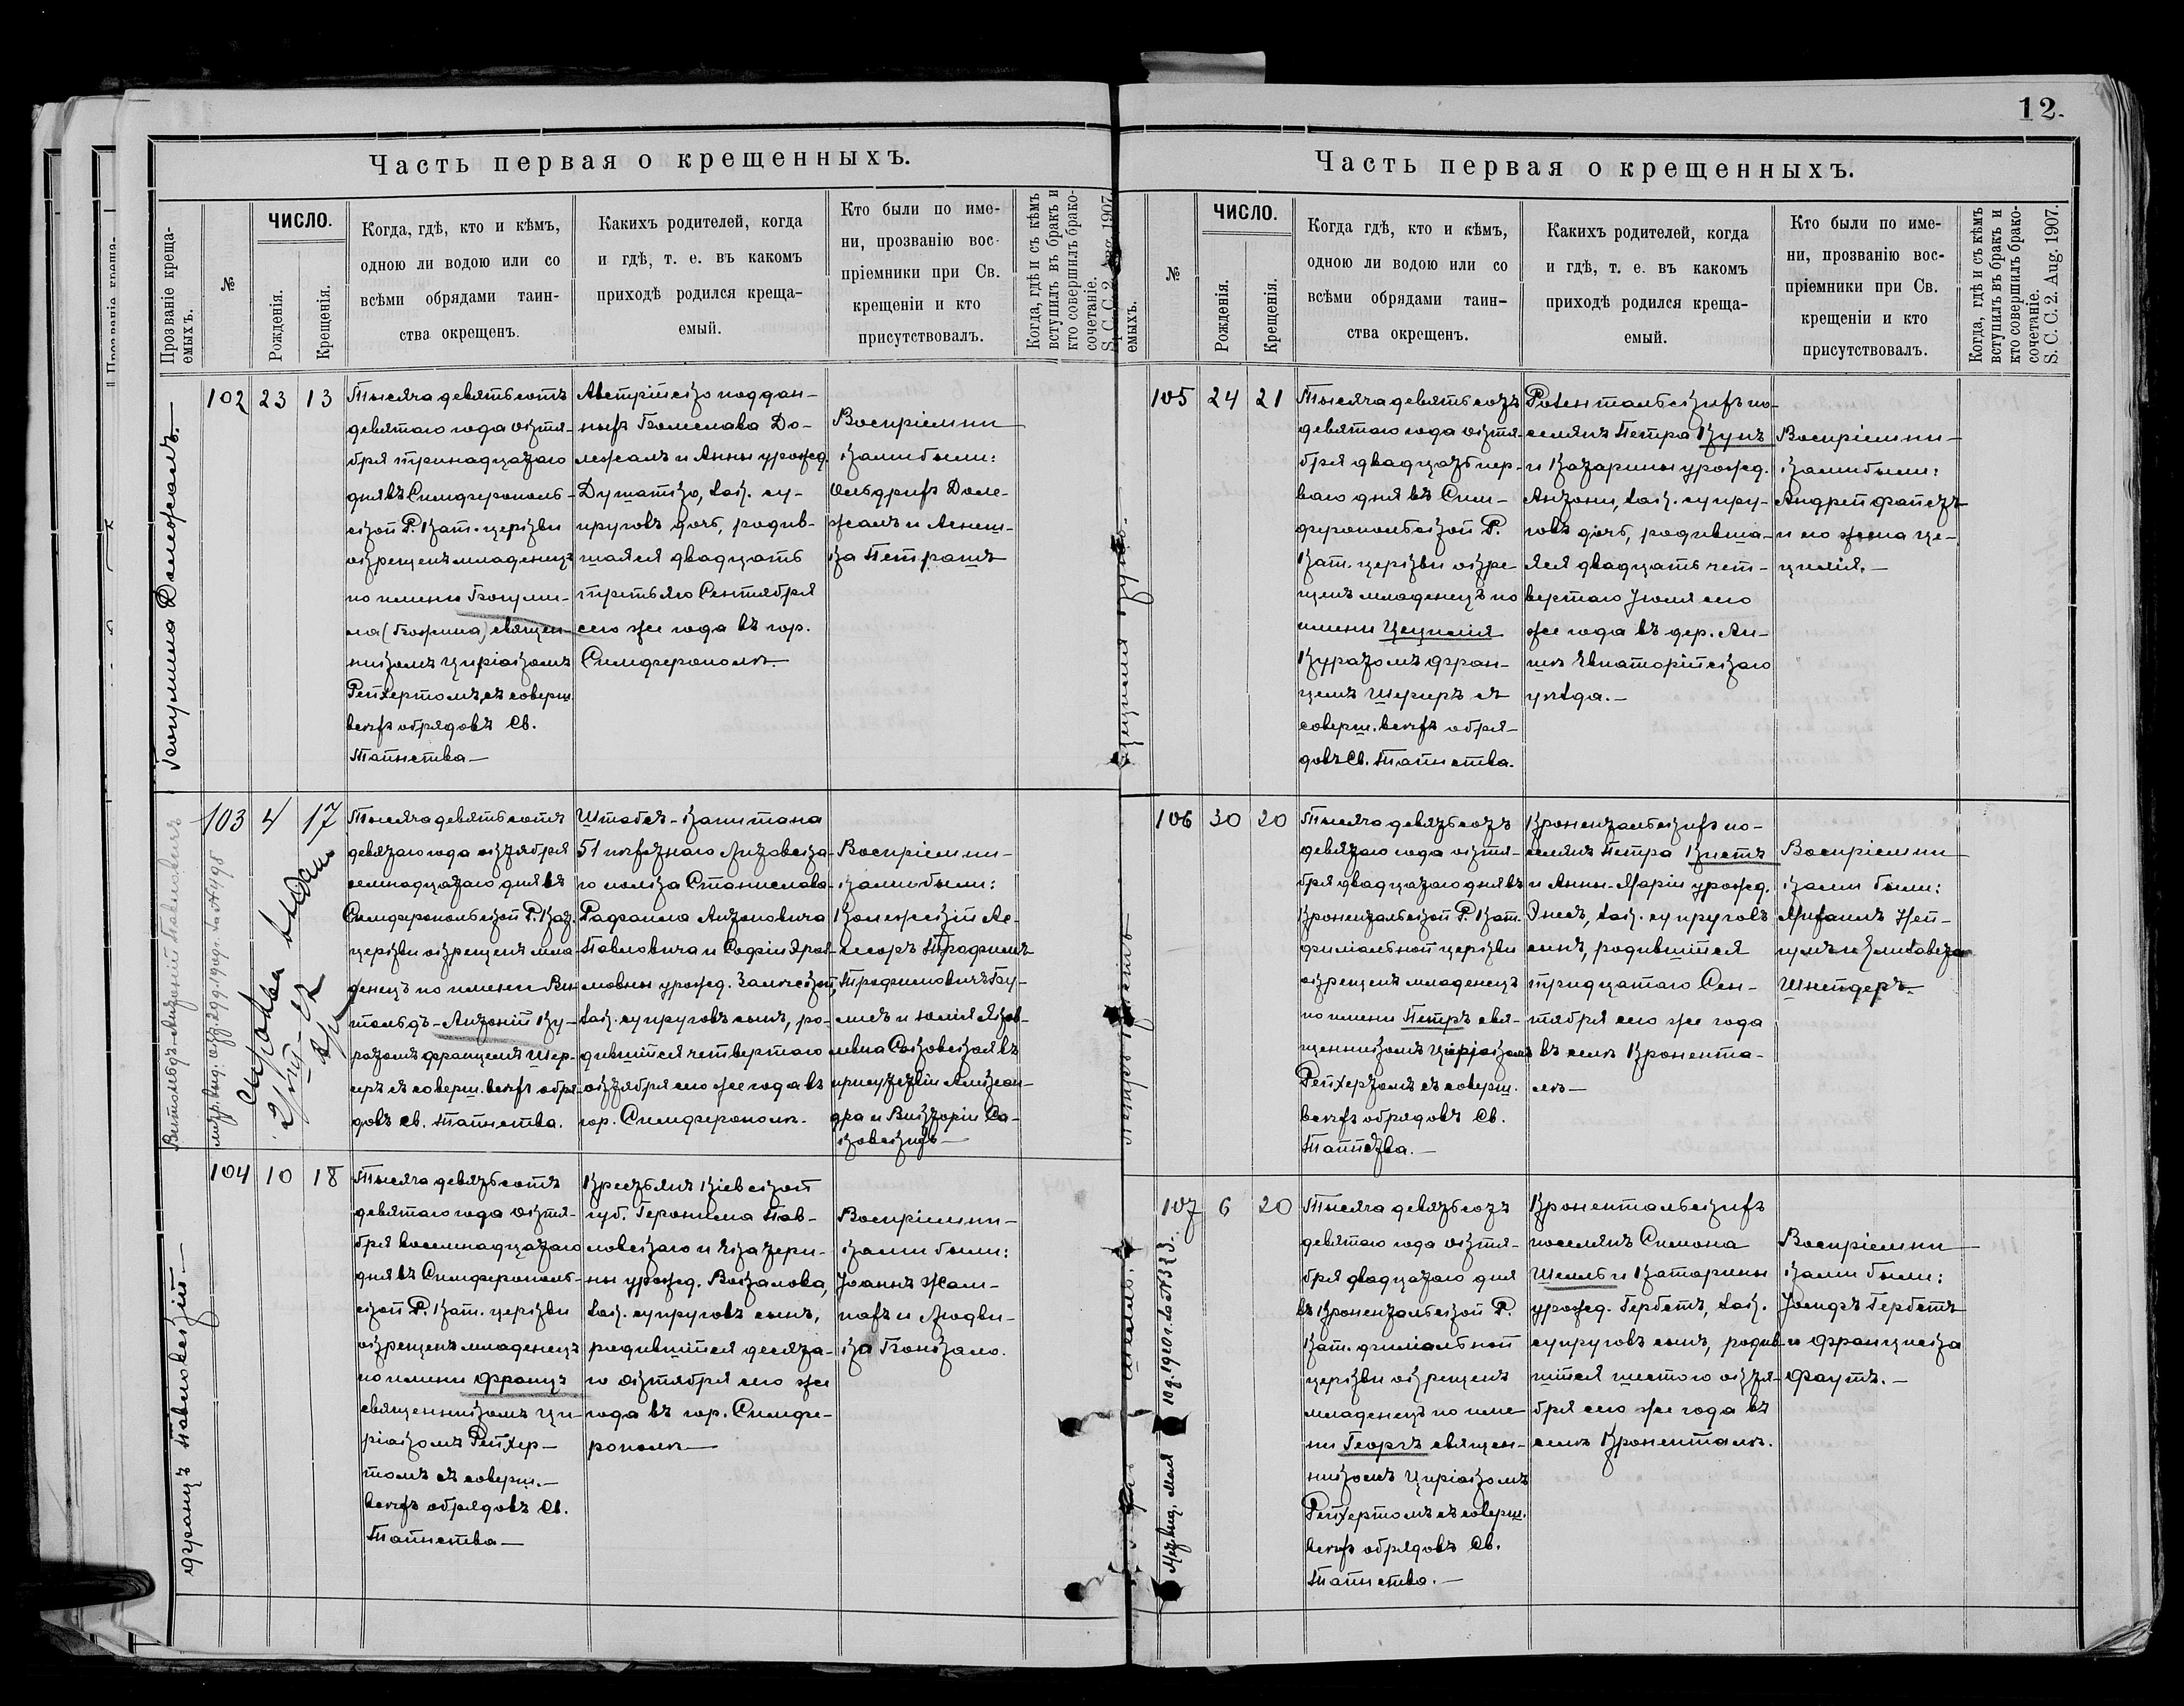 12.
Часть первая о крещенныхъ.
Прозваніе креща-
емыхъ.
№
ЧИСЛО.
Рожденія.
Крещенія.
Когда, гдѣ, кто и кѣмъ,
одною ли водою или со
всѣми обрядами таин-
ства окрещенъ.
Какихъ родителей, когда
и гдѣ, т. е. въ какомъ
приходѣ родился креща-
емый.
Кто были по име-
ни, прозванію вос-
пріемники при Св.
крещеніи и кто
присутствовалъ.
Когда, гдѣ и съ кѣмъ
вступилъ въ бракъ и
кто совершилъ брако-
сочетаніе.
S. C. C. 2. Aug. 1907.
Богумила Долежалъ.
102 23 13
Тысяча девятьсотъ
девятаго года октя-
бря тринадцатаго
дня въ Симферополь-
ской Р. Кат. церкви
окрещенъ младенецъ
по имени Богуми-
ла (Божина) священ-
никомъ Циріакомъ
Рейхертомъ, съ соверш.
всѣхъ обрядовъ Св.
Таинства —
Австрійско поддан-
ныхъ Болеслава До-
лежалъ и Анны урожд.
Душатко, зак. су-
пруговъ дочь, родив-
шаяся двадцать
третьяго Сентября
сего же года въ гор.
Симферополѣ.
Воспріемни-
ками были:
Ольдрихъ Доле-
жалъ и Агнеш-
ка Петрашъ
Витольдъ-Антоній Павловичъ
103 4 17
Справка выдана
Тысяча девятьсотъ
девятаго года октября
семнадцатаго дня въ
Симферопольской Р. Кат.
церкви окрещенъ мла-
денецъ по имени Ви-
тольдъ-Антоній Ку-
ратомъ Францемъ Шер-
еръ съ соверш. всѣхъ обря-
довъ Св. Таинства.
Штабсъ-Капитана
51 пѣхотнаго Литовска-
го полка Станислава-
Рафаила Антоновича
Павловича и Софіи
урожд.
зак. супруговъ сынъ, ро-
дившійся четвертаго
октября сего же года въ
гор. Симферополѣ.
Воспріемни-
ками были:
Коллежскій Ас-
сесоръ Трофимъ
Трофимовичъ
и Юлія
въ
присутствіи Алексан-
дра и Викторіи Са-
ковскихъ —
Францъ Павловскій —
104 10 18
Тысяча девятьсотъ
девятаго года октя-
бря восемнадцатаго
дня въ Симферополь-
ской Р. Кат. церкви
окрещенъ младенецъ
по имени Францъ
священникомъ Ци-
ріакомъ Рейхер-
томъ съ соверш.—
всѣхъ обрядовъ Св.
Таинства —
Крестьянъ Кіевской
губ. Геронима Пав-
ловскаго и Екатери-
ны урожд.
зак. супруговъ сынъ,
родившійся десята-
го октября сего же
года въ гор. Симфе-
рополѣ —
Воспріемни-
ками были:
Іоаннъ
и Людви-
ка
Часть первая о крещенныхъ.
емыхъ.
№
ЧИСЛО.
Рожденія.
Крещенія.
Когда гдѣ, кто и кѣмъ,
одною ли водою или со
всѣми обрядами таин-
ства окрещенъ.
Какихъ родителей, когда
и гдѣ, т. е. въ какомъ
приходѣ родился креща-
емый.
Кто были по име-
ни, прозванію вос-
пріемники при Св.
крещеніи и кто
присутствовалъ.
Когда, гдѣ и съ кѣмъ
вступилъ въ бракъ и
кто совершилъ брако-
сочетаніе.
S. C. C. 2. Aug. 1907.
105 24 21
Тысяча девятьсотъ
девятаго года октя-
бря двадцать пер-
ваго дня въ Сим-
феропольской Р.
Кат. церкви окре-
щенъ младенецъ по
имени Цецилія
Куратомъ Фран-
цемъ Шереръ съ
соверш. всѣхъ обря-
довъ Св. Таинства.
Розентальскихъ по-
селянъ Петра Кунъ
и Катарины урожд.
Антони, зак. супру-
говъ дочь, родивша-
яся двадцать чет-
вертаго Іюля сего
же года въ дер. Ан-
Евпаторійскаго
уѣзда.—
Воспріемни-
ками были:
Андрей
и его жена Це-
цилія.—
106 30 20
Тысяча девятьсотъ
девятаго года октя-
бря двадцатаго дня въ
Кронентальской Р. Кат.
филіальной церкви
окрещенъ младенецъ
по имени Петръ свя-
щенникомъ Циріакомъ
Рейхертомъ съ соверш.
всѣхъ обрядовъ Св.
Таинства.—
Кронентальскихъ по-
селянъ Петра Кистъ
и Анны-Маріи урожд.
зак. супруговъ
сынъ, родившійся
тридцатаго Сен-
тября сего же года
въ селѣ Кронента-
лѣ —
Воспріемни-
ками были:
Михаилъ
и Елизавета
Шнейдеръ.
Мая 10 д. 1910 г. за № 323.
107 6 20
Тысяча девятьсотъ
девятаго года октя-
бря двадцатаго дня
въ Кронентальской Р.
Кат. филіальной
церкви окрещенъ
младенецъ по име-
ни Георгъ священ-
никомъ Циріакомъ
Рейхертомъ съ соверш.
всѣхъ обрядовъ Св.
Таинства.—
Кронентальскихъ
поселянъ Симона
Шелль и Катарины
урожд. Гербетъ, зак.
супруговъ сынъ, родив-
шійся шестого октя-
бря сего же года въ
селѣ Кроненталѣ.
Воспріемни-
ками были:
Іосифъ Гербетъ
и Франциска
Фаутъ.—